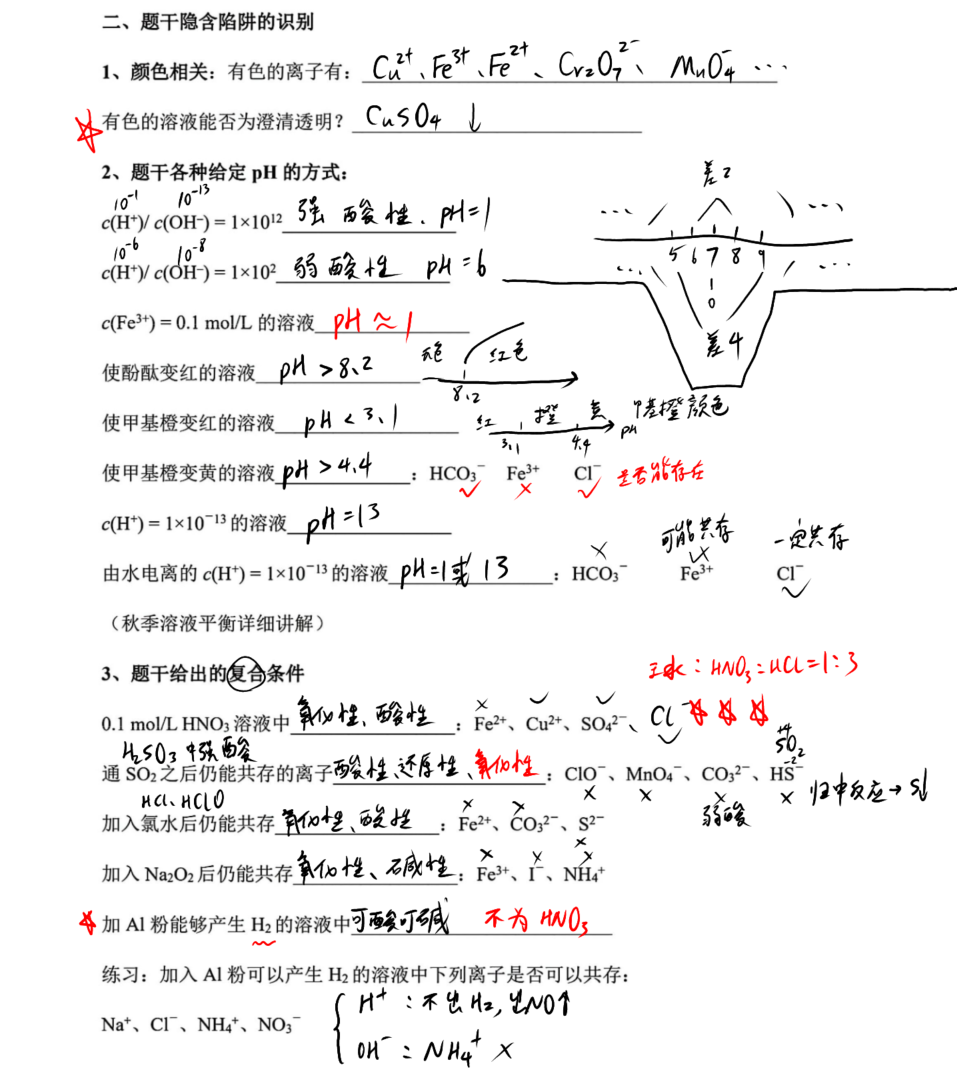 二、题干隐含陷阱的识别
1、颜色相关：有色的离子有：Cu²⁺、Fe³⁺、Fe²⁺、Cr₂O₇²⁻、MnO₄⁻ ...
☆有色的溶液能否为澄清透明？CuSO₄ ↓
2、题干各种给定 pH 的方式：
差2
10⁻¹ 10⁻¹³
c(H⁺)/ c(OH⁻) = 1×10¹² 强酸性．pH=1
... ...
10⁻⁶ 10⁻⁸
5 6 7 8 9
c(H⁺)/ c(OH⁻) = 1×10² 弱酸性 pH=6
... ...
0
c(Fe³⁺) = 0.1 mol/L 的溶液 pH≈1
差4
无色 红色
使酚酞变红的溶液 pH >8.2
8.2
使甲基橙变红的溶液 pH < 3.1
红 橙 黄 甲基橙颜色
3.1 4.4 pH
使甲基橙变黄的溶液 pH >4.4 ：HCO₃⁻ ✓ Fe³⁺ × Cl⁻ ✓ 是否能存在
c(H⁺) = 1×10⁻¹³ 的溶液 pH=13
× 可能共存 一定共存
由水电离的 c(H⁺) = 1×10⁻¹³ 的溶液 pH=1或 13 ：HCO₃⁻ Fe³⁺ Cl⁻
（秋季溶液平衡详细讲解）
3、题干给出的复合条件
王水：HNO₃：HCl=1：3
0.1 mol/L HNO₃ 溶液中 氧化性、酸性 ：Fe²⁺、Cu²⁺、SO₄²⁻、Cl⁻ ☆☆☆
H₂SO₃ 中强酸
+4
SO₂
通 SO₂ 之后仍能共存的离子 酸性、还原性、氧化性 ：ClO⁻、MnO₄⁻、CO₃²⁻、HS⁻
-2
× × × × 归中反应→S↓
弱酸
HCl、HClO
加入氯水后仍能共存 氧化性、酸性 ：Fe²⁺、CO₃²⁻、S²⁻
× × ×
加入 Na₂O₂ 后仍能共存 氧化性、碱性 ：Fe³⁺、I⁻、NH₄⁺
× × ×
☆加 Al 粉能够产生 H₂ 的溶液中 可酸可碱 不为 HNO₃
练习：加入 Al 粉可以产生 H₂ 的溶液中下列离子是否可以共存：
Na⁺、Cl⁻、NH₄⁺、NO₃⁻
H⁺：不出H₂，出NO↑
OH⁻：NH₄⁺ ×